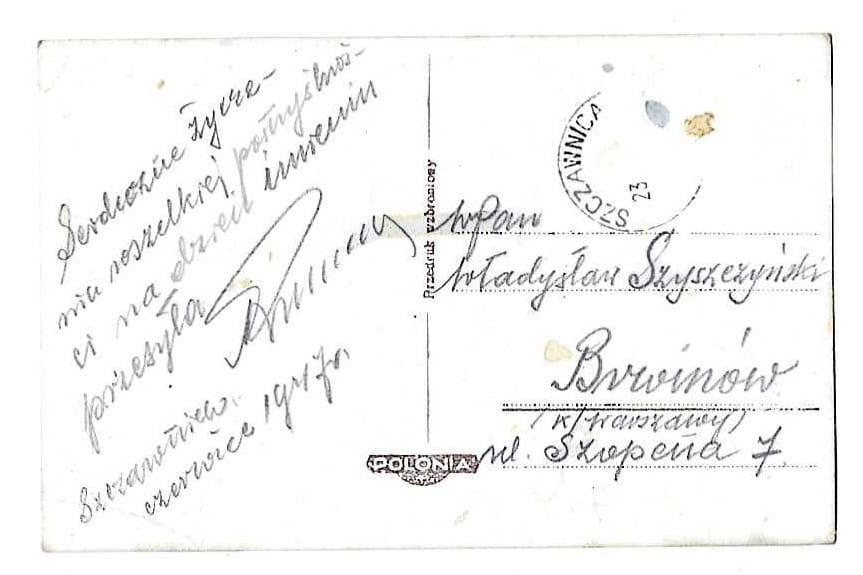 Serdeczne życze-
nia wszelkiej pomyślnoś-
ci na dzień imienin
przesyła
Szczawnica.
czerwiec 1947r.
Przedruk wzbroniony
POLONIA
SZCZAWNICA
23
WPan
Władysław Szyszczyński
Brwinów
(k/Warszawy)
ul. Szopena 7.